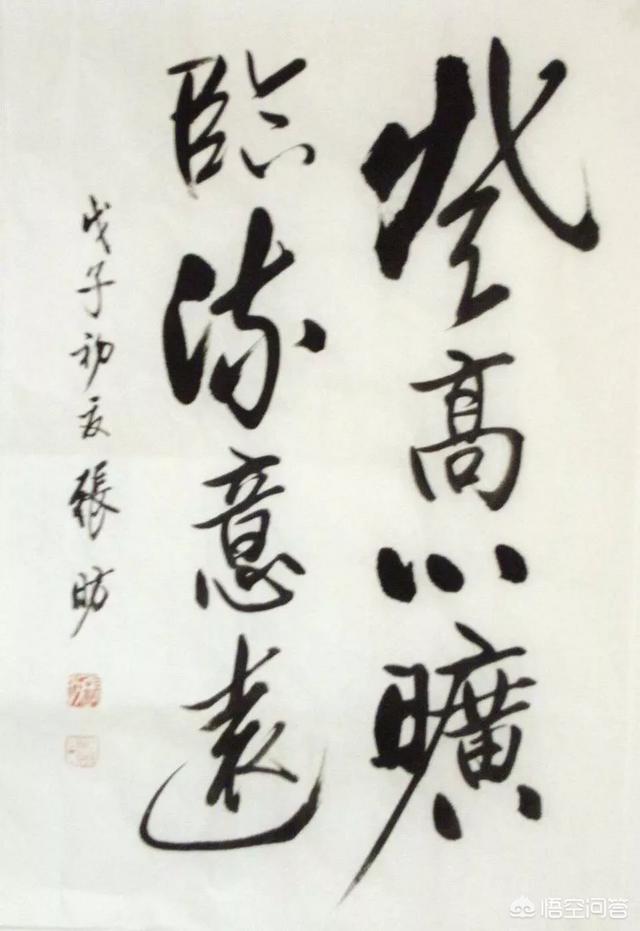 登高心曠
臨流意遠
戊子初夏 張昉
悟空问答